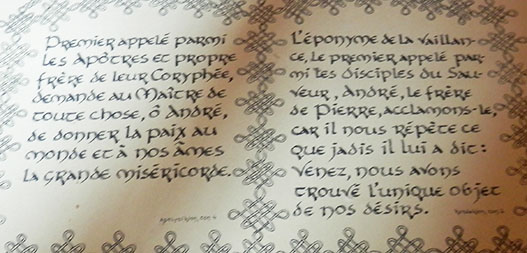 Premier appelé parmi
les Apôtres et propre
frère de leur Coryphée,
demande au Maître de
toute chose, ô André,
de donner la paix au
monde et à nos âmes
la grande miséricorde.
L'éponyme de la vaillan-
ce, le premier appelé par-
mi les disciples du Sau-
veur, André, le frère
de Pierre, acclamons-le,
car il nous répète ce
que jadis il lui a dit:
Venez, nous avons
trouvé l'unique objet
de nos désirs.